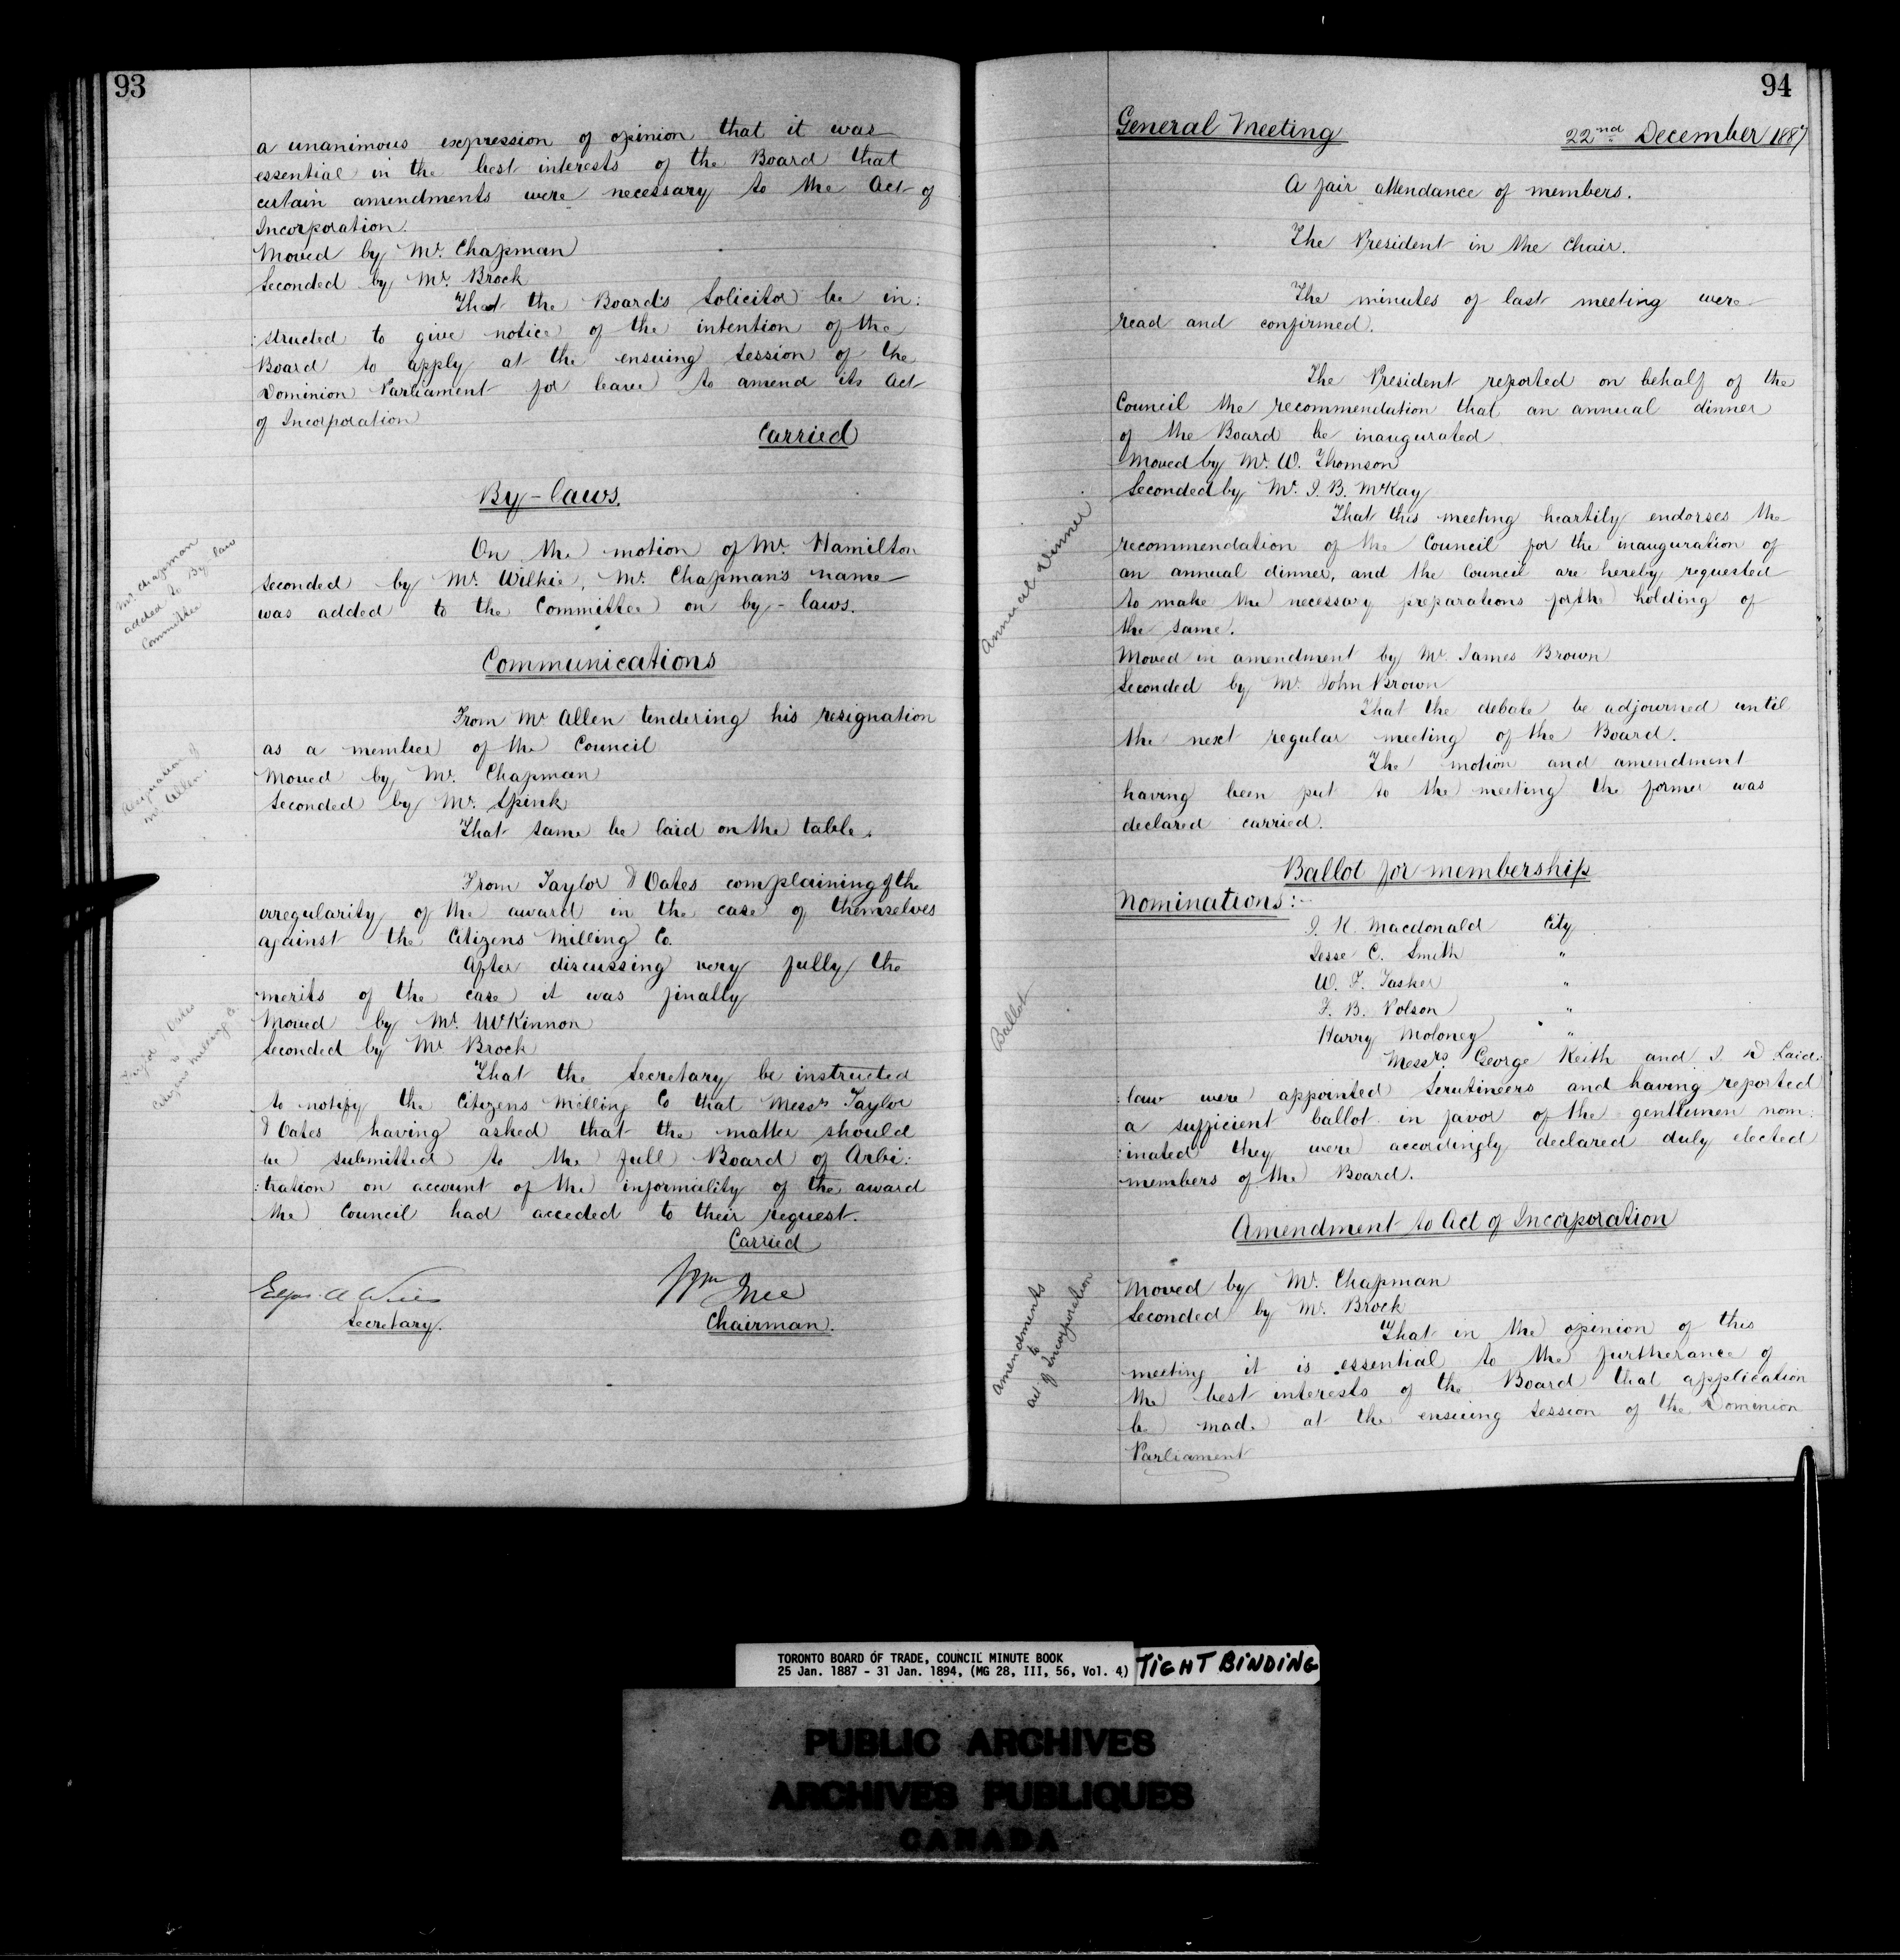 93
a unanimous expression of opinion that it was
essential in the best interests of the Board that
certain amendments were necessary to the Act of
Incorporation.
Moved by Mr. Chapman
Seconded by Mr. Brock
That the Board's Solicitor be in:
:structed to give notice of the intention of the
Board to apply at the ensuing Session of the
Dominion Parliament for leave to amend its Act
of Incorporation
Carried
By-laws.
Mr. Chapman
added to By law
Committee
On the motion of Mr. Hamilton
seconded by Mr. Wilkie, Mr. Chapman's name
was added to the Committee on by-laws.
Communications
Resignation of
Mr Allen.
From Mr Allen tendering his resignation
as a member of the Council
Moved by Mr. Chapman
Seconded by Mr. Spink
That same be laid on the table.
From Taylor & Oates complaining of the
irregularity of the award in the case of themselves
against the Citizens Milling Co.
After discussing very fully the
merits of the case it was finally
Taylor & Oates
Citizens Milling Co.
Moved by Mr. McKinnon
Seconded by Mr Brock
That the Secretary be instructed
to notify the Citizens Milling Co that Messrs Taylor
& Oates having asked that the matter should
be submitted to the full Board of Arbi:
:tration on account of the informality of the award
the Council had acceded to their request.
Carried
Edgar A Wills
Secretary.
Wm Ince
Chairman.
94
General Meeting
22nd December 1887
A fair attendance of members.
The President in the Chair.
The minutes of last meeting were
read and confirmed.
The President reported on behalf of the
Council the recommendation that an annual dinner
of the Board be inaugurated
Moved by Mr. W. Thomson
Seconded by Mr. J. B. McKay
Annual Dinner
That this meeting heartily endorses the
recommendation of the Council for the inauguration of
an annual dinner, and the Council are hereby requested
to make the necessary preparations for the holding of
the same.
Moved in amendment by Mr. James Brown
Seconded by Mr. John Brown
That the debate be adjourned until
the next regular meeting of the Board.
The motion and amendment
having been put to the meeting the former was
declared carried.
Ballot for membership
Nominations:-
Ballot
J. K. Macdonald City
Jesse C. Smith "
W. T. Tasker "
F. B. Polson "
Harry Moloney "
Messrs. George Keith and J D Laid:
:law were appointed Scrutineers and having reported
a sufficient ballot in favor of the gentlemen nom:
:inated they were accordingly declared duly elected
members of the Board.
Amendment to Act of Incorporation
Amendments
to
Act of Incorporation
Moved by Mr. Chapman
Seconded by Mr. Brock
That in the opinion of this
meeting it is essential to the furtherance of
the best interests of the Board that application
be made at the ensuing Session of the Dominion
Parliament
TORONTO BOARD OF TRADE, COUNCIL MINUTE BOOK
25 Jan. 1887 - 31 Jan. 1894, (MG 28, III, 56, Vol. 4)
TIGHT BINDING
PUBLIC ARCHIVES
ARCHIVES PUBLIQUES
CANADA